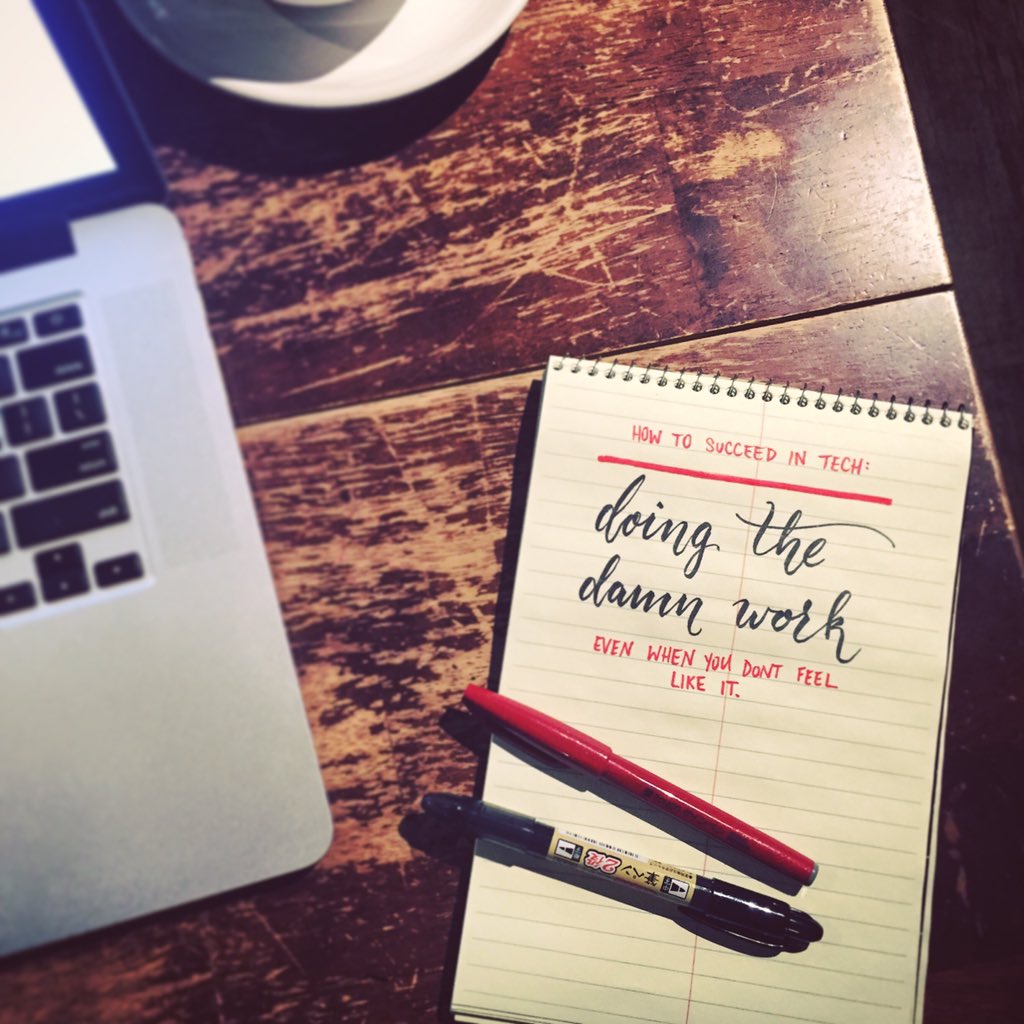 HOW TO SUCCEED IN TECH:
doing the
damn work
EVEN WHEN YOU DONT FEEL
LIKE IT.
筆ペン